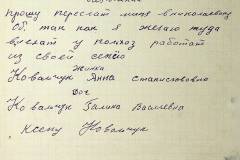 прошу переслат миня в николаевску
об. так как я желаю туда
виехат у полхоз работат
из своей семею
Жинка
Ковальчук Анна Станиславовна
Доч
Ковалчук Галина Василевна
Ковалчук